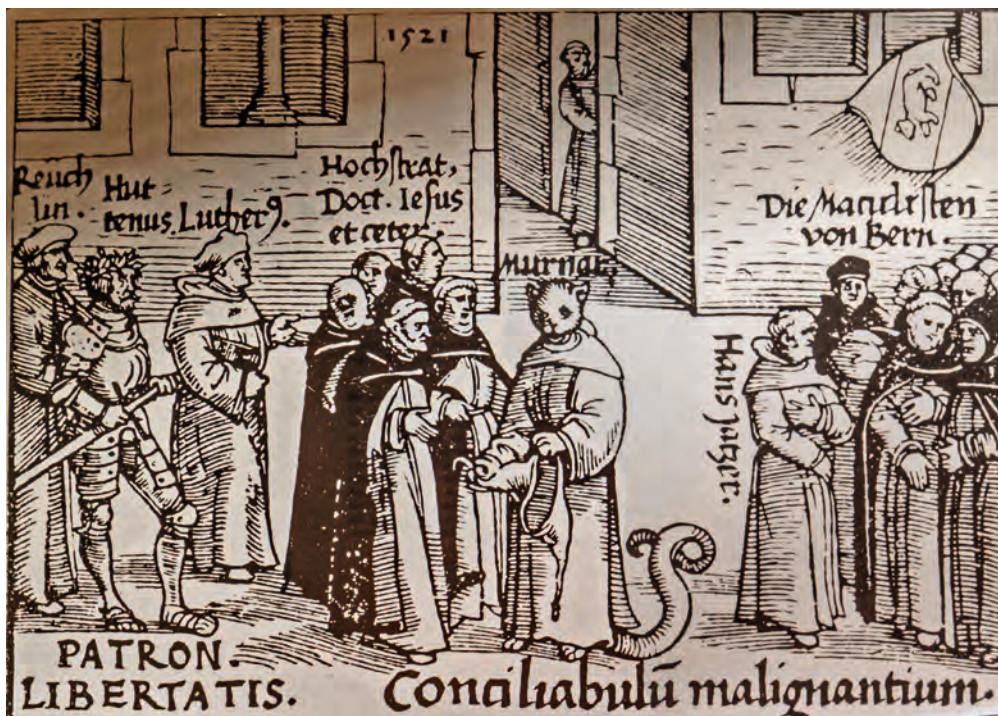 1521
Reuch
lin.
Hut
tenus.
Luther9.
Hochstrat,
Doct. Iesus
et ceter.
Murnar,
Die Maculisten
von Bern.
Hans Jatzer.
PATRON.
LIBERTATIS.
Conciliabulū malignantium.